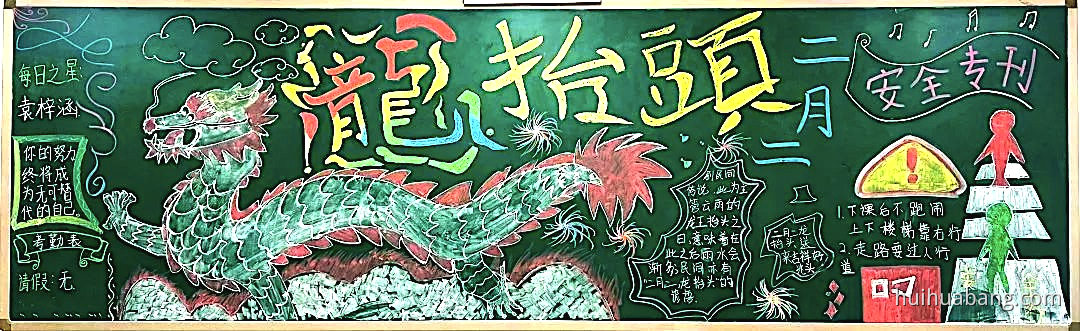 每日之星
袁梓涵
你的努力
终将成
为无可替
代的自己
考勤表
请假：无
龍抬頭
二月二
民间
传说，此为主
管云雨的
龙王抬头之
日，意味着在
此之后雨水会
渐多，民间亦有
"二月二龙抬头"的
二月二龙
抬头送
来吉祥好
兆头
安全专刊
!
1.下课后不跑闹
上下楼梯靠右行
2.走路要过人行
道
huihuabang.com